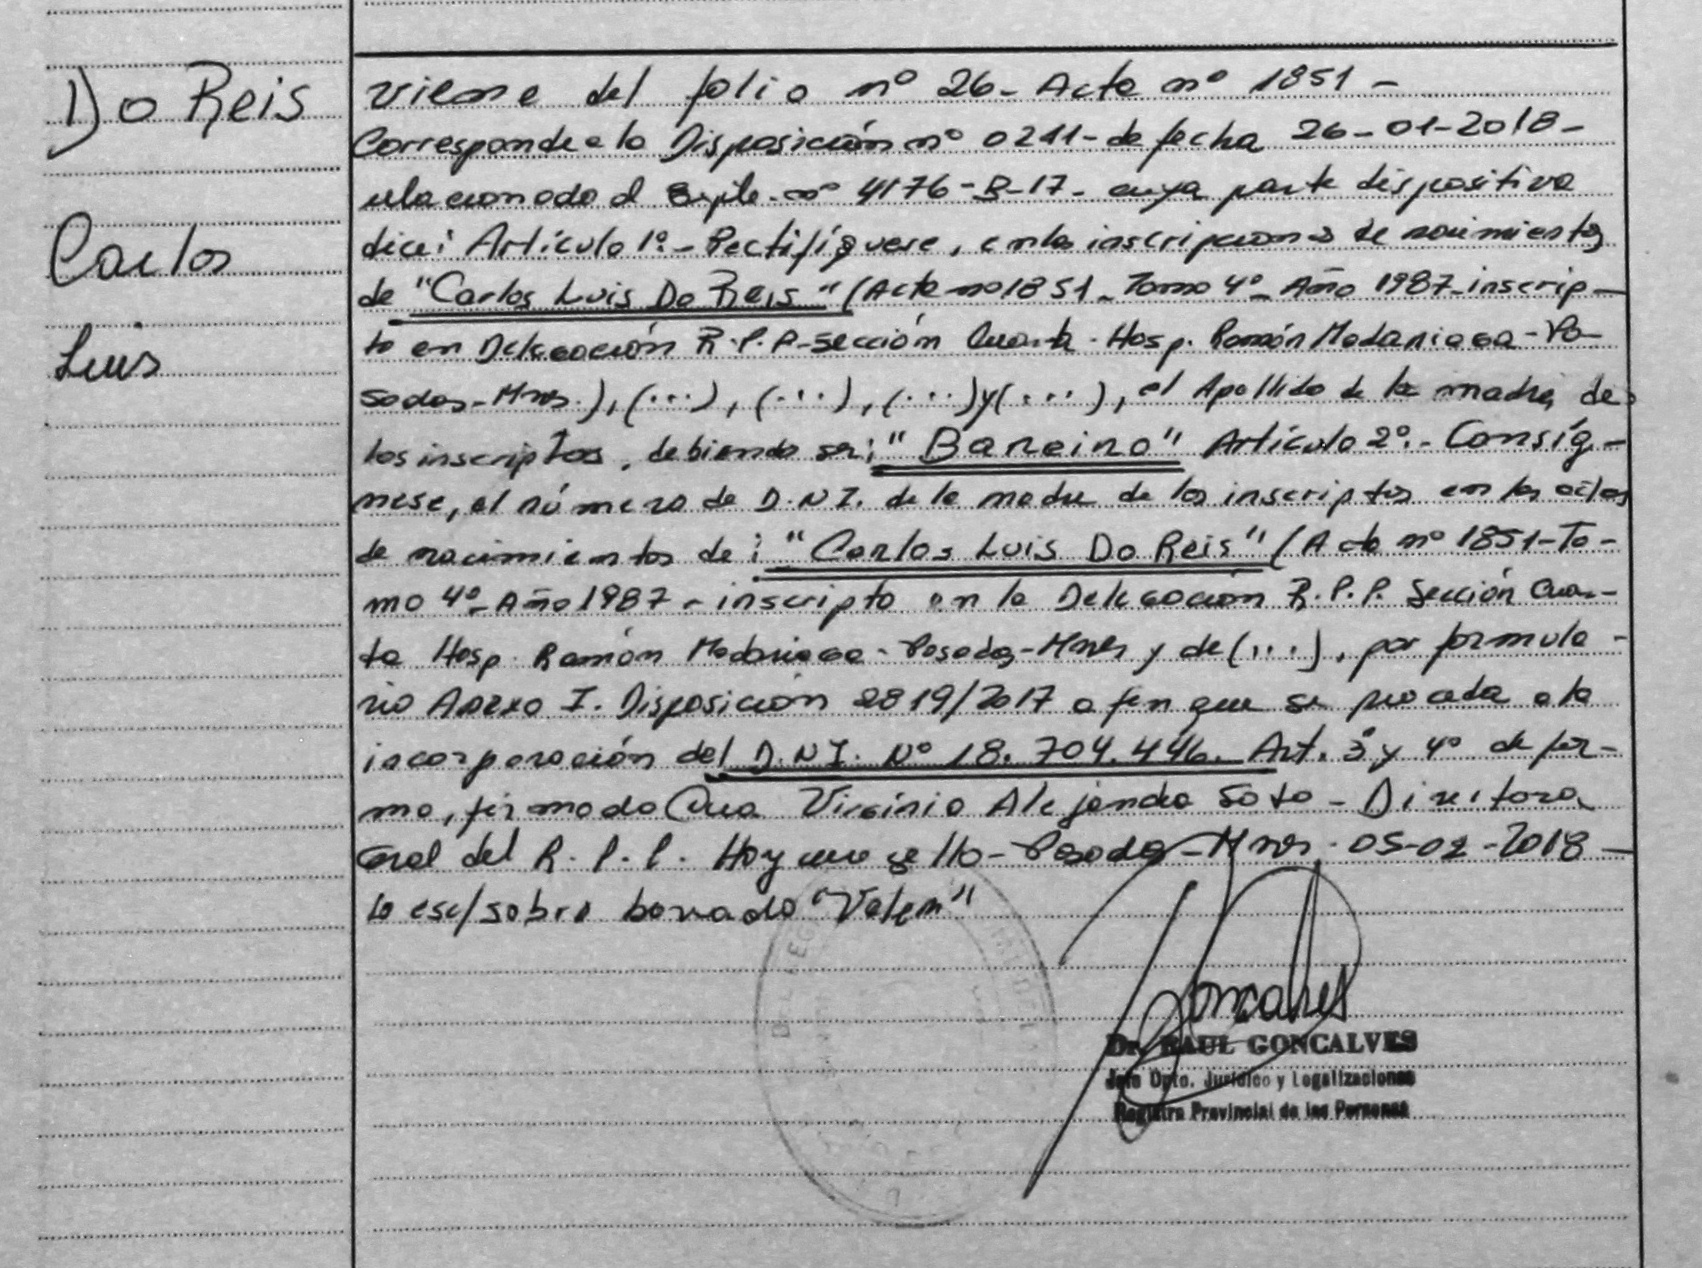 Do Reis
Carlos
Luis
Viene del folio nº 26- Acta nº 1851 -
Corresponde a la Disposición nº 0241- de fecha 26-01-2018-
relacionado al Expte. nº 4176-B-17- cuya parte dispositiva
dice: Artículo 1º.- Rectifíquese, en las inscripciones de nacimientos
de "Carlos Luis Do Reis" (Acta nº 1851- Tomo 4º- Año 1987-inscrip-
to en Delegación R.P.P-Sección Cuarta - Hosp. Ramón Madariaga-Po-
sadas-Mnes.), (...), (...), (...) y (...), el Apellido de la madre de
los inscriptos, debiendo ser: "Bareiro" Artículo 2º.- Consíg-
nese, el número de D.N.I. de la madre de los inscriptos en las actas
de nacimientos de: "Carlos Luis Do Reis" (Acta nº 1851-To-
mo 4º- Año 1987 - inscripto en la Delegación R.P.P. Sección Cuar-
ta Hosp. Ramón Madariaga - Posadas-Mnes y de (...), por formula-
rio Anexo I. Disposición 2819/2017 a fin que se proceda a la
incorporación del D.N.I. Nº 18.704.446. Art. 3 y 4º de for-
ma, firmado Virginia Alejandra Soto - Directora
Gral del R.P.P. Hoy Posadas-Mnes. 05-02-2018 -
Lo esc/sobre borrado "Valen"
Goncalves
Dr. RAUL GONCALVES
Jefe Dpto. Jurídico y Legalizaciones
Registro Provincial de las Personas